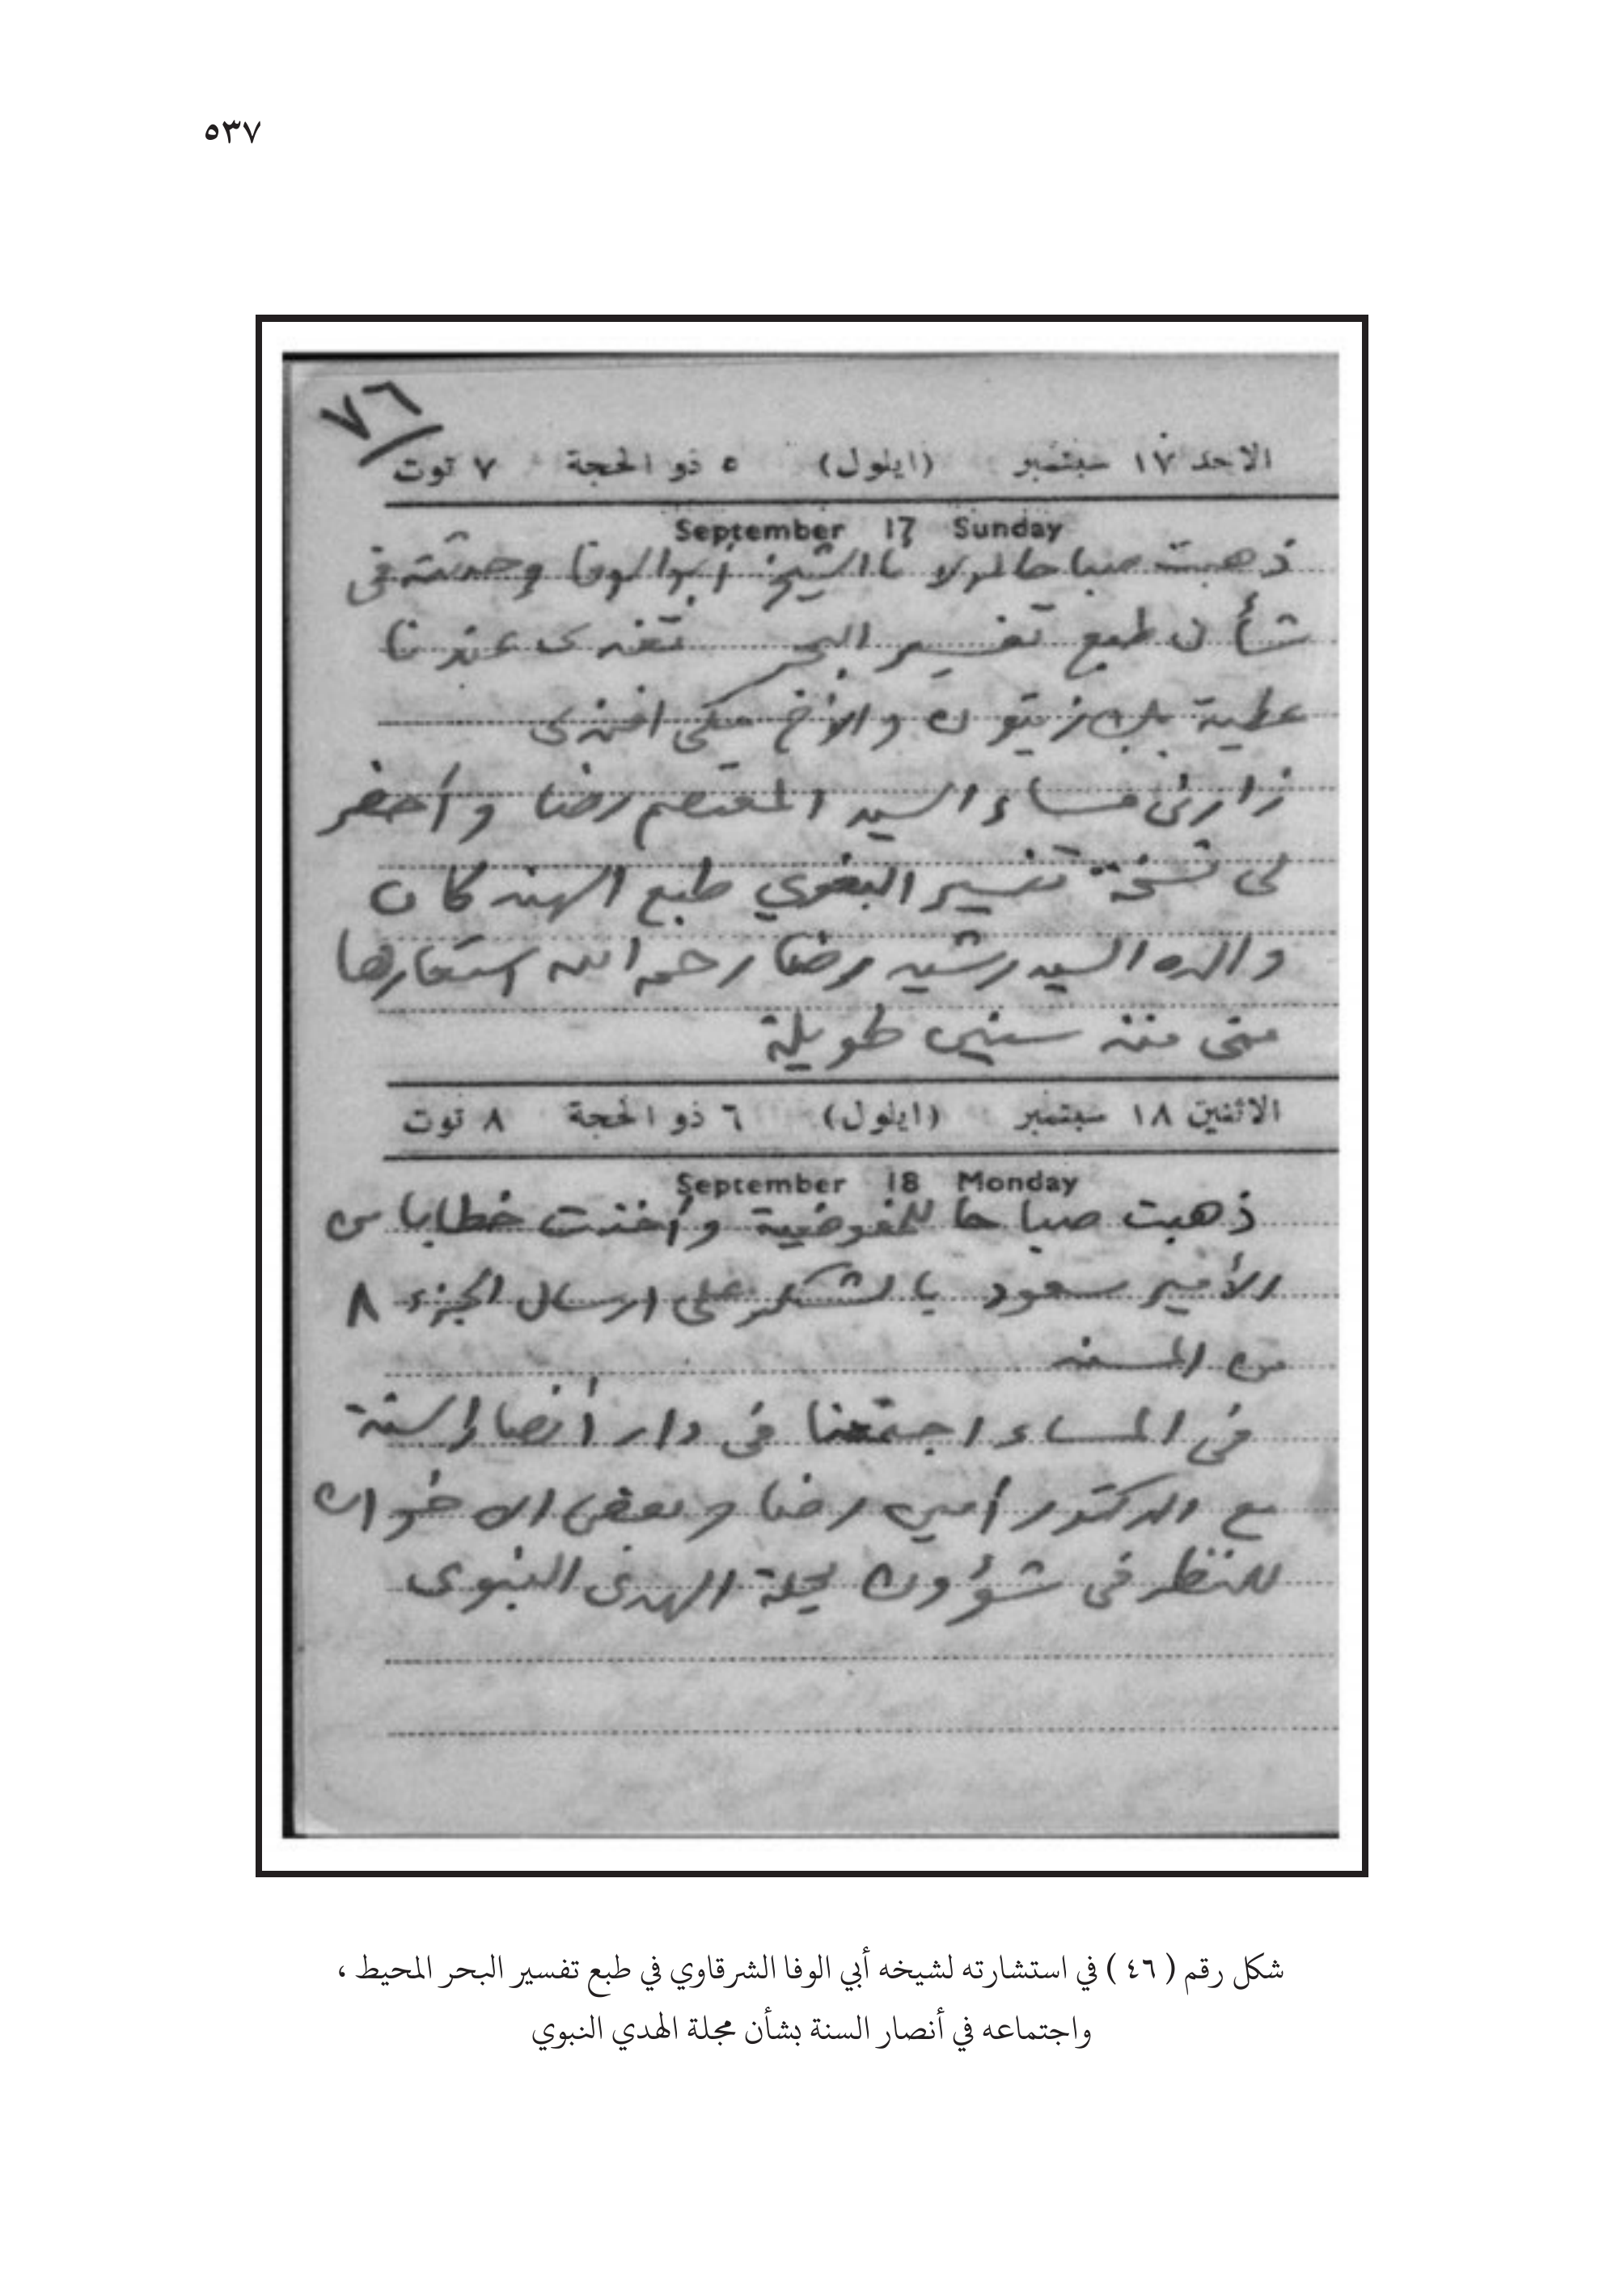 ٥٣٧
٧٦
الاحد ١٧ سبتمبر (ايلول) ٥ ذو الحجة ٧ توت
September 17 Sunday
ذهبت صباحا لمولانا الشيخ أبو الوفا وحدثته في
شأن طبع تفسير البحر تغدى عندنا
عطية بك زيتون والأخ مكي افندى
زارنى مساء السيد المعتصم رضا وأحضر
لى نسخة تفسير البغوي طبع الهند كان
والده السيد رشيد رضا رحمه الله استعارها
منى منذ سنين طويلة
الاثنين ١٨ سبتمبر (ايلول) ٦ ذو الحجة ٨ توت
September 18 Monday
ذهبت صباحا للمفوضية وأخذت خطابا من
الأمير سعود بالشكر على ارسال الجزء ٨
من المسند
في المساء اجتمعنا في دار أنصار السنة
مع الدكتور أمين رضا وبعض الاخوان
للنظر في شؤون مجلة الهدى النبوى
شكل رقم ( ٤٦ ) في استشارته لشيخه أبي الوفا الشرقاوي في طبع تفسير البحر المحيط ،
واجتماعه في أنصار السنة بشأن مجلة الهدي النبوي